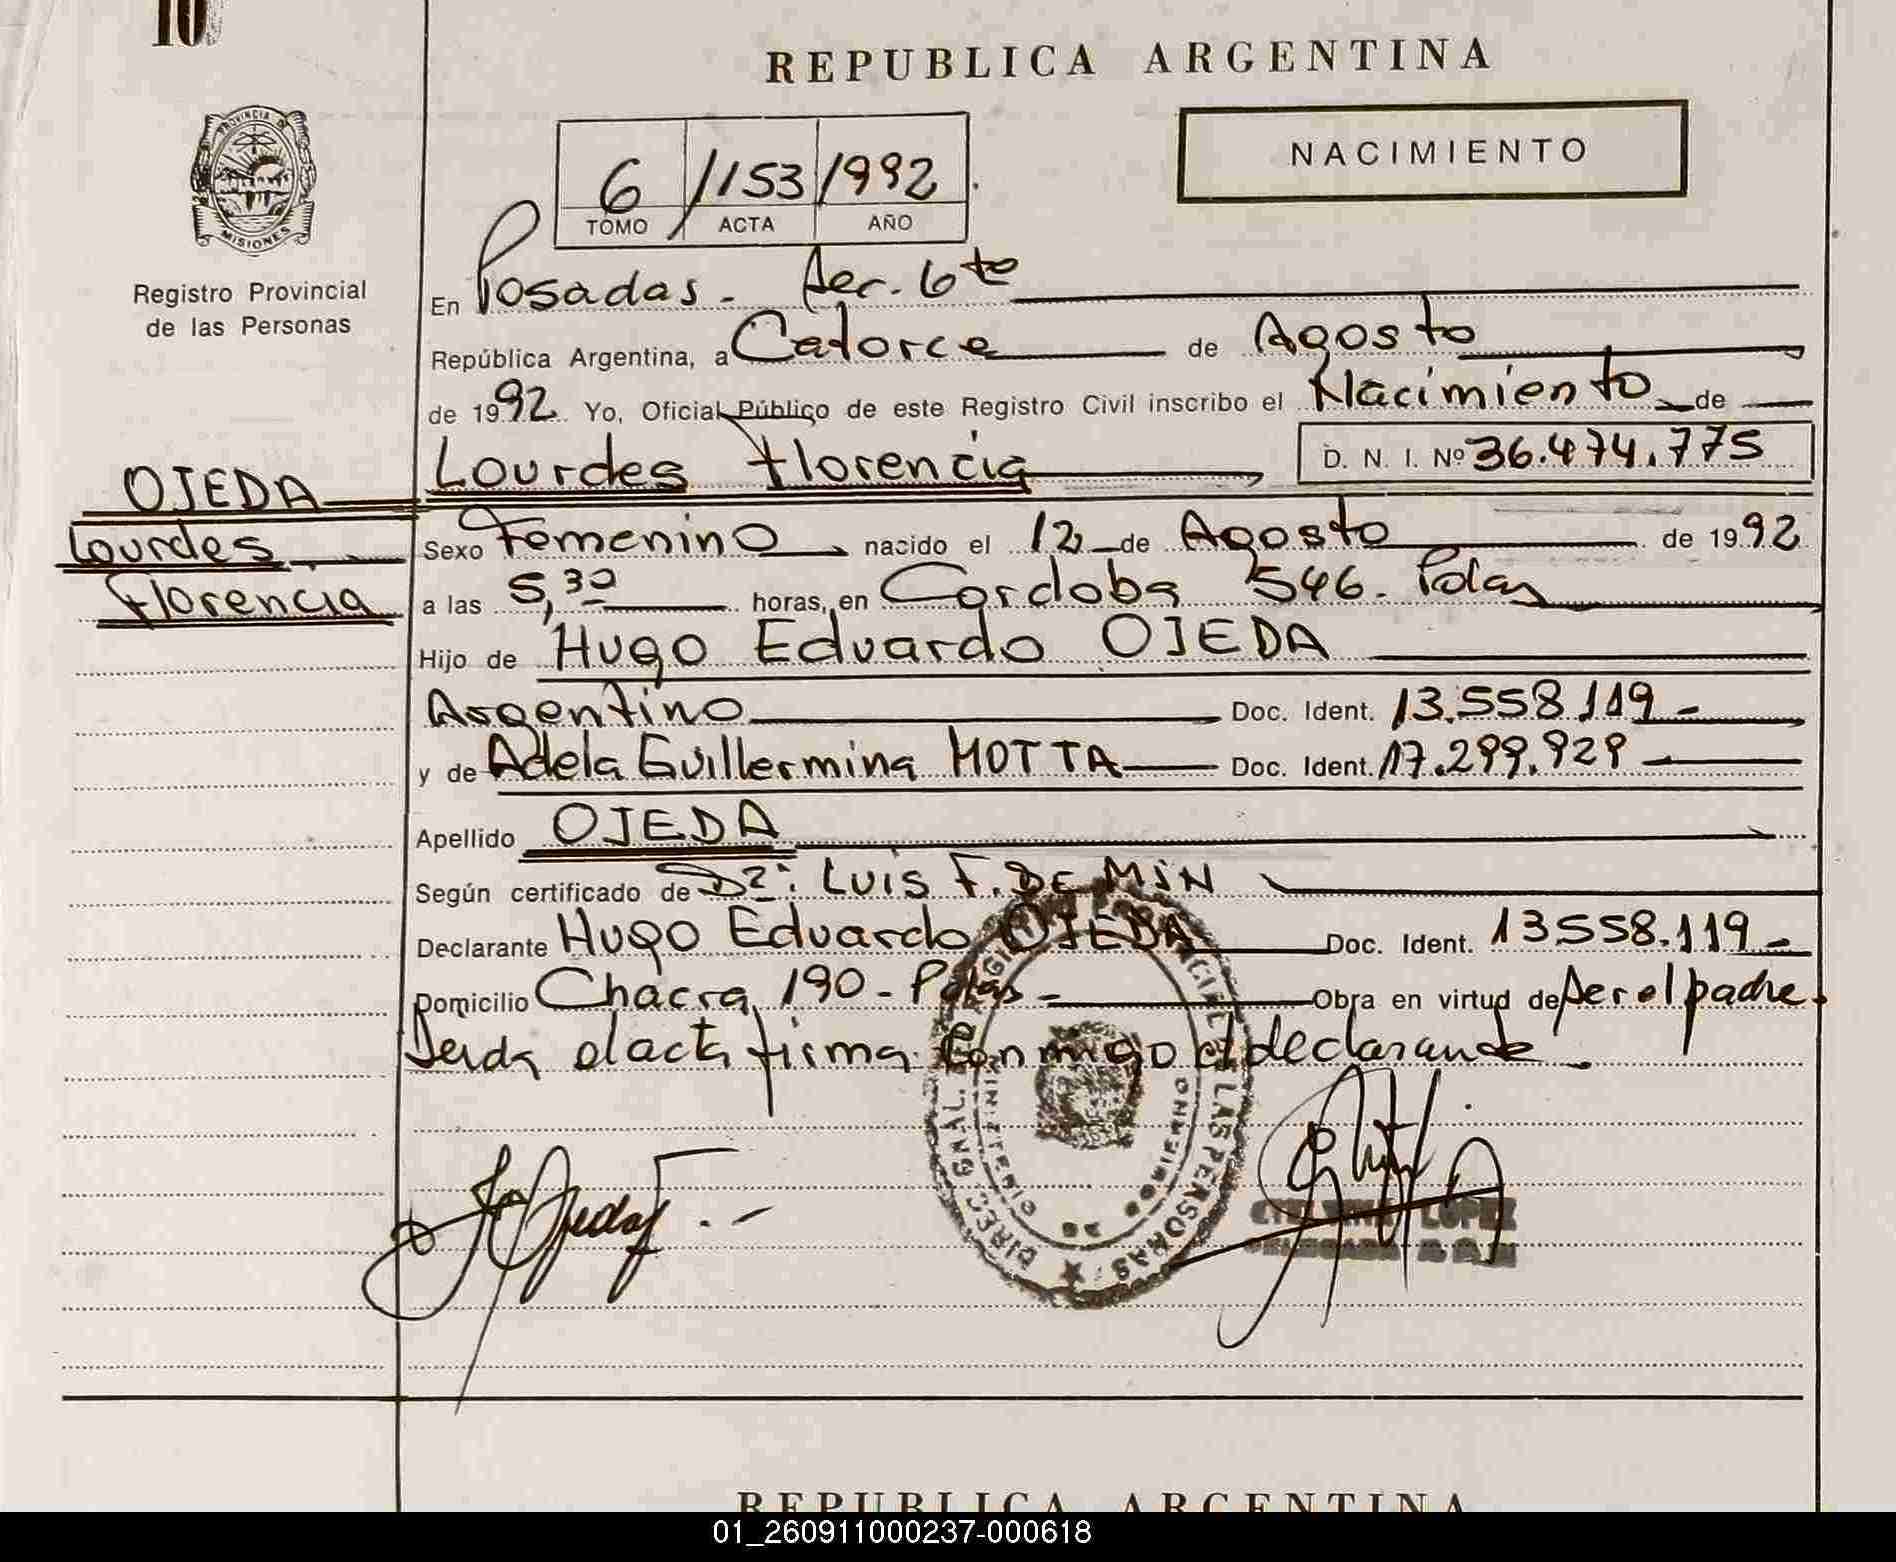 10
REPUBLICA ARGENTINA
NACIMIENTO
6 /153/1992
TOMO ACTA AÑO
PROVINCIA DE
MISIONES
Registro Provincial
de las Personas
En Posadas. Secc. 6ta
República Argentina, a Catorce de Agosto
de 1992 Yo, Oficial Público de este Registro Civil inscribo el Nacimiento de
Lourdes Florencia D. N. I. Nº 36.474.775
OJEDA
Lourdes
Florencia
Sexo Femenino nacido el 12 de Agosto de 1992
a las 5,30 horas, en Cordoba 546. Pdas
Hijo de Hugo Eduardo OJEDA
Argentino Doc. Ident. 13.558.119-
y de Adela Guillermina MOTTA Doc. Ident. 17.299.929
Apellido OJEDA
Según certificado de Dr. Luis F. DE MIN
Declarante Hugo Eduardo OJEDA Doc. Ident. 13558.119-
Domicilio Chacra 190-Pdas- Obra en virtud de ser el padre.
Leida el acta firma conmigo el declarante
LOPEZ
LAS PERSONAS
REPUBLICA ARGENTINA
01_260911000237-000618